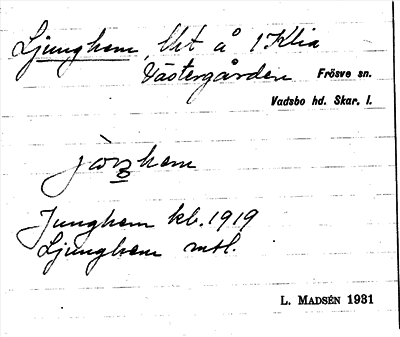 Ljunghem, lht å 1 Klia
Västergården Frösve sn.
Vadsbo hd. Skar. l.
Junghem kb. 1919
Ljunghem mtl.
L. MADSÉN 1931